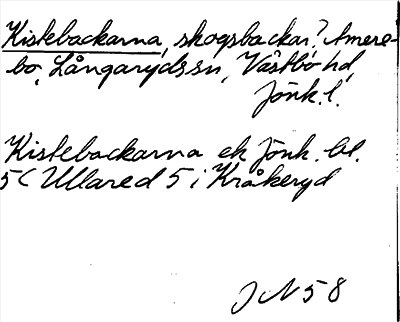 Kistebackarna, skogsbackar, Amere-
bo, Långaryds sn, Västbo hd,
Jönk. l.
Kistebackarna ek Jönk. bl.
5 ( Ullared 5 i Kråkeryd
J N 58